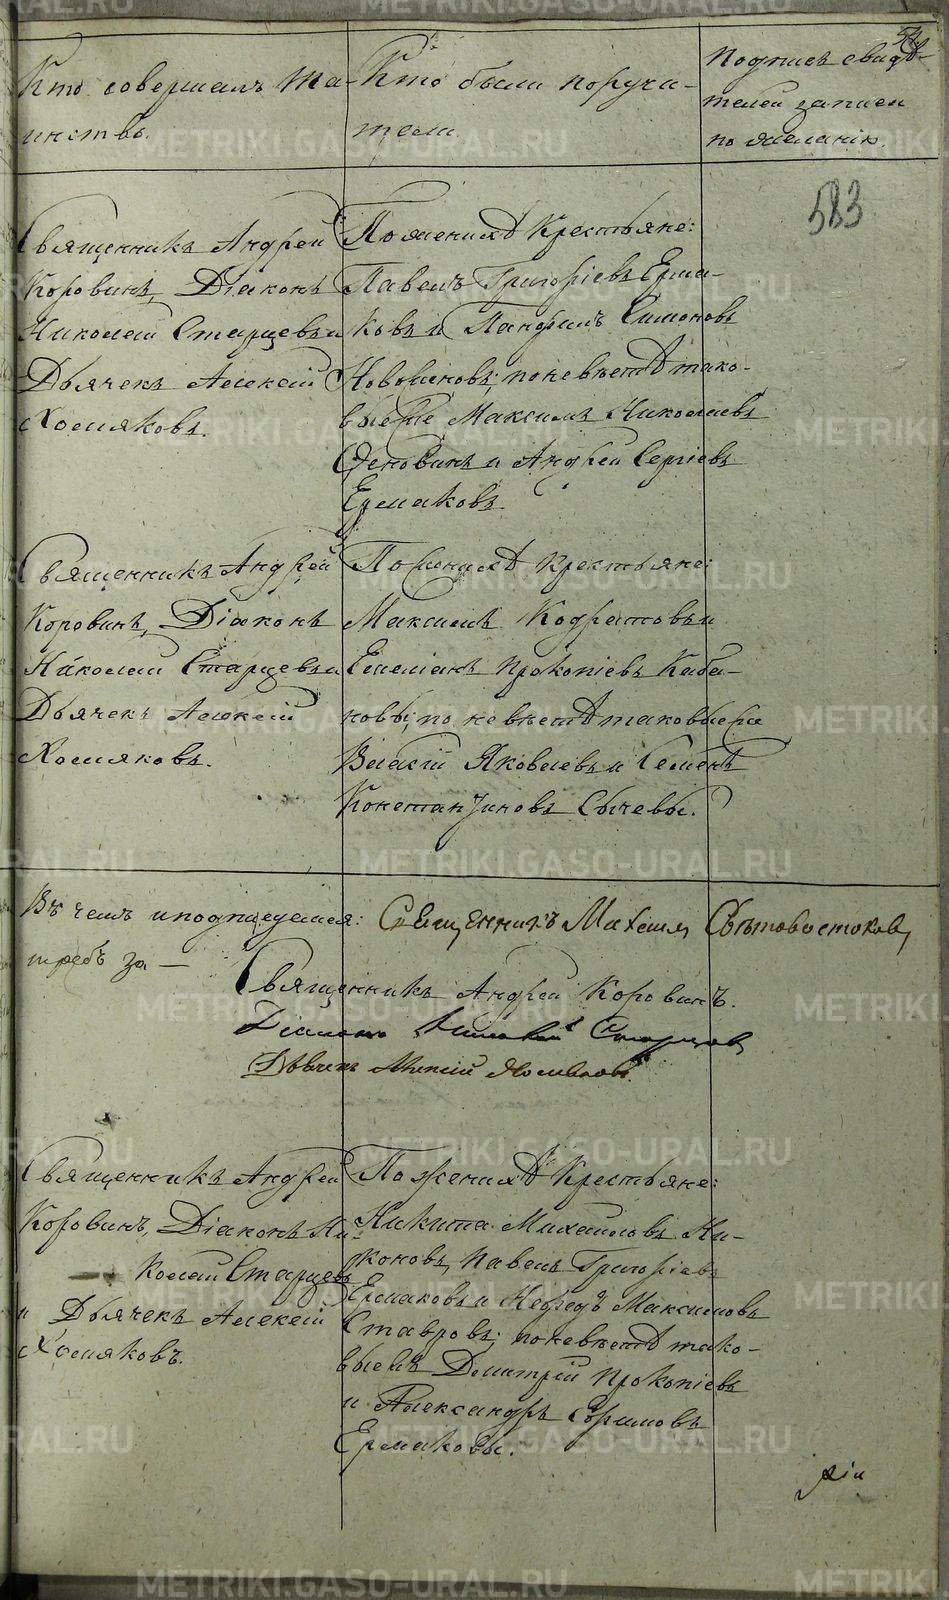 Кто совершалъ Та-
инство.
Кто были поручи-
тели.
Подпись свидѣ-
телей записи
по желанію.
583
Священникъ Андрей
Коровинъ, Діаконъ
Николай Старцевъ и
Дьячекъ Алексій
Хомяковъ.
По женихѣ Крестьяне:
Павелъ Григоріевъ Ерма-
ковъ и Панфилъ Симоновъ
Новоженовъ; по невѣстѣ тако-
выеже Максимъ Николаевъ
и Андрей Сергіевъ
Ермаковъ.
Священникъ Андрей
Коровинъ, Діаконъ
Николай Старцевъ и
Дьячекъ Алексій
Хомяковъ.
По женихѣ Крестьяне:
Максимъ Кодратовъ и
Емеліанъ Прокопіевъ Каба-
ковы; по невѣстѣ таковыеже
Власій Яковлевъ и Семенъ
Константиновъ Сычевы.
Въ чемъ и подписуемся: Священникъ Михаилъ Свѣтовостоковъ
требъ за —
Священникъ Андрей Коровинъ.
Діаконъ Николай Старцовъ
Дьячекъ Алексій Хомяковъ.
Священникъ Андрей
Коровинъ, Діаконъ Ни-
колай Старцевъ
и Дьячекъ Алексій
Хомяковъ.
По женихѣ Крестьяне:
Никита Михайловъ Ни-
коновъ, Павелъ Григоріевъ
Ермаковъ и Нефедъ Максимовъ
Ставровъ; по невѣстѣ тако-
выежъ Димитрій Прокопіевъ
и Александръ Ефимовъ
Ермаковы.
METRIKI.GASO-URAL.RU